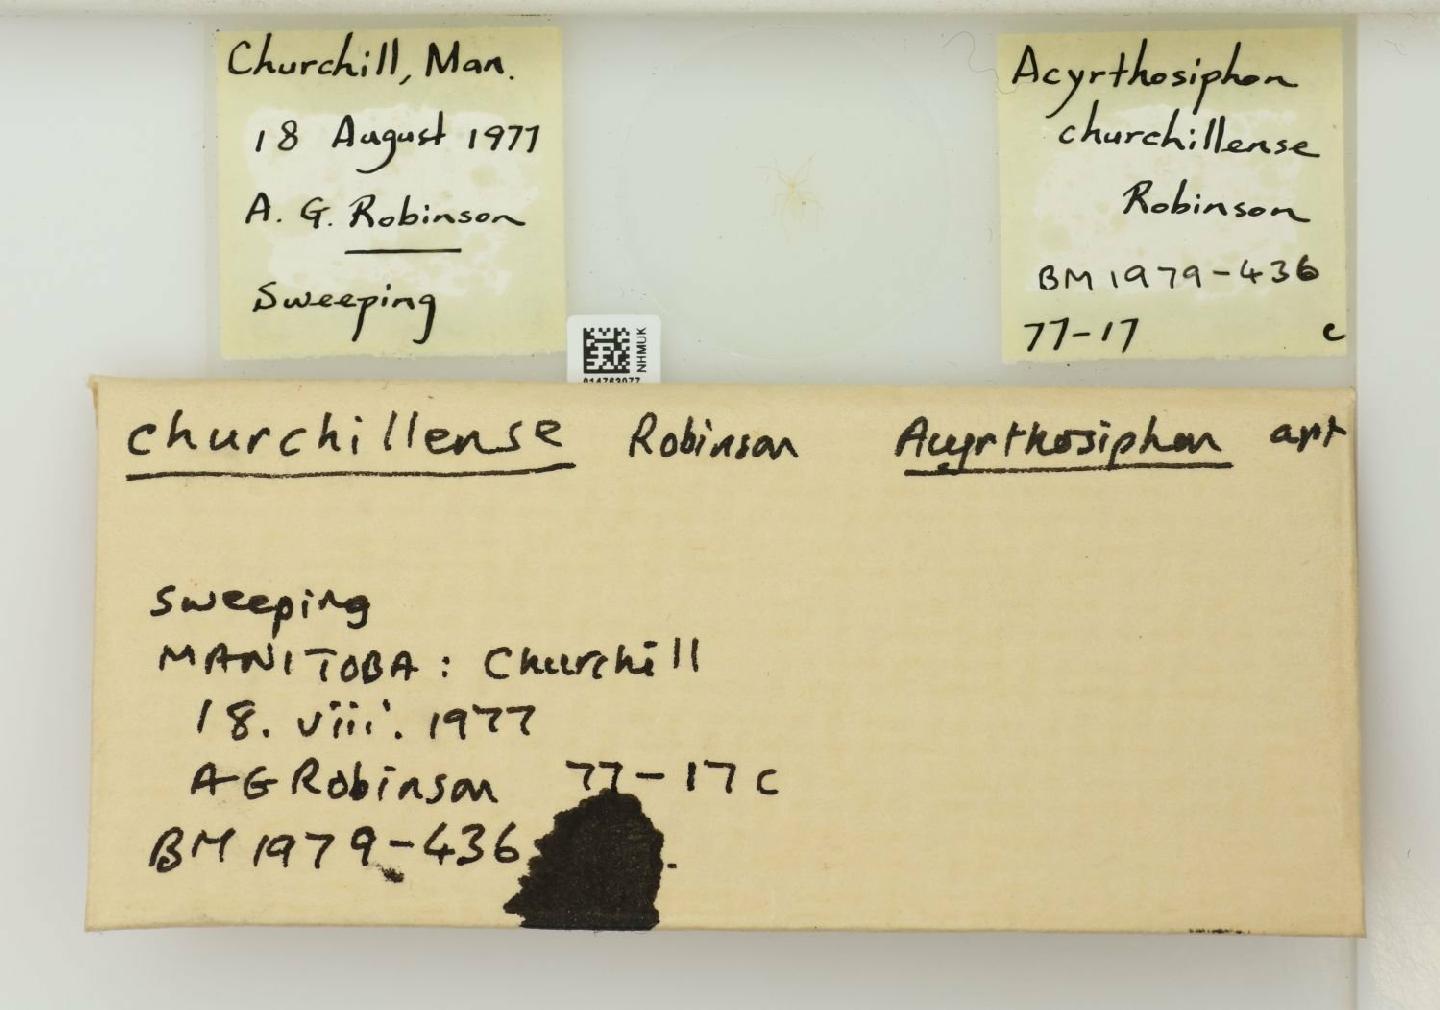 Churchill, Man.
18 August 1977
A. G. Robinson
Sweeping
Acyrthosiphon
churchillense
Robinson
BM 1979-436
77-17 c
NHMUK
churchillense Robinson Acyrthosiphon apt
sweeping
MANITOBA: Churchill
18. viii. 1977
A G Robinson 77-17 c
BM 1979-436